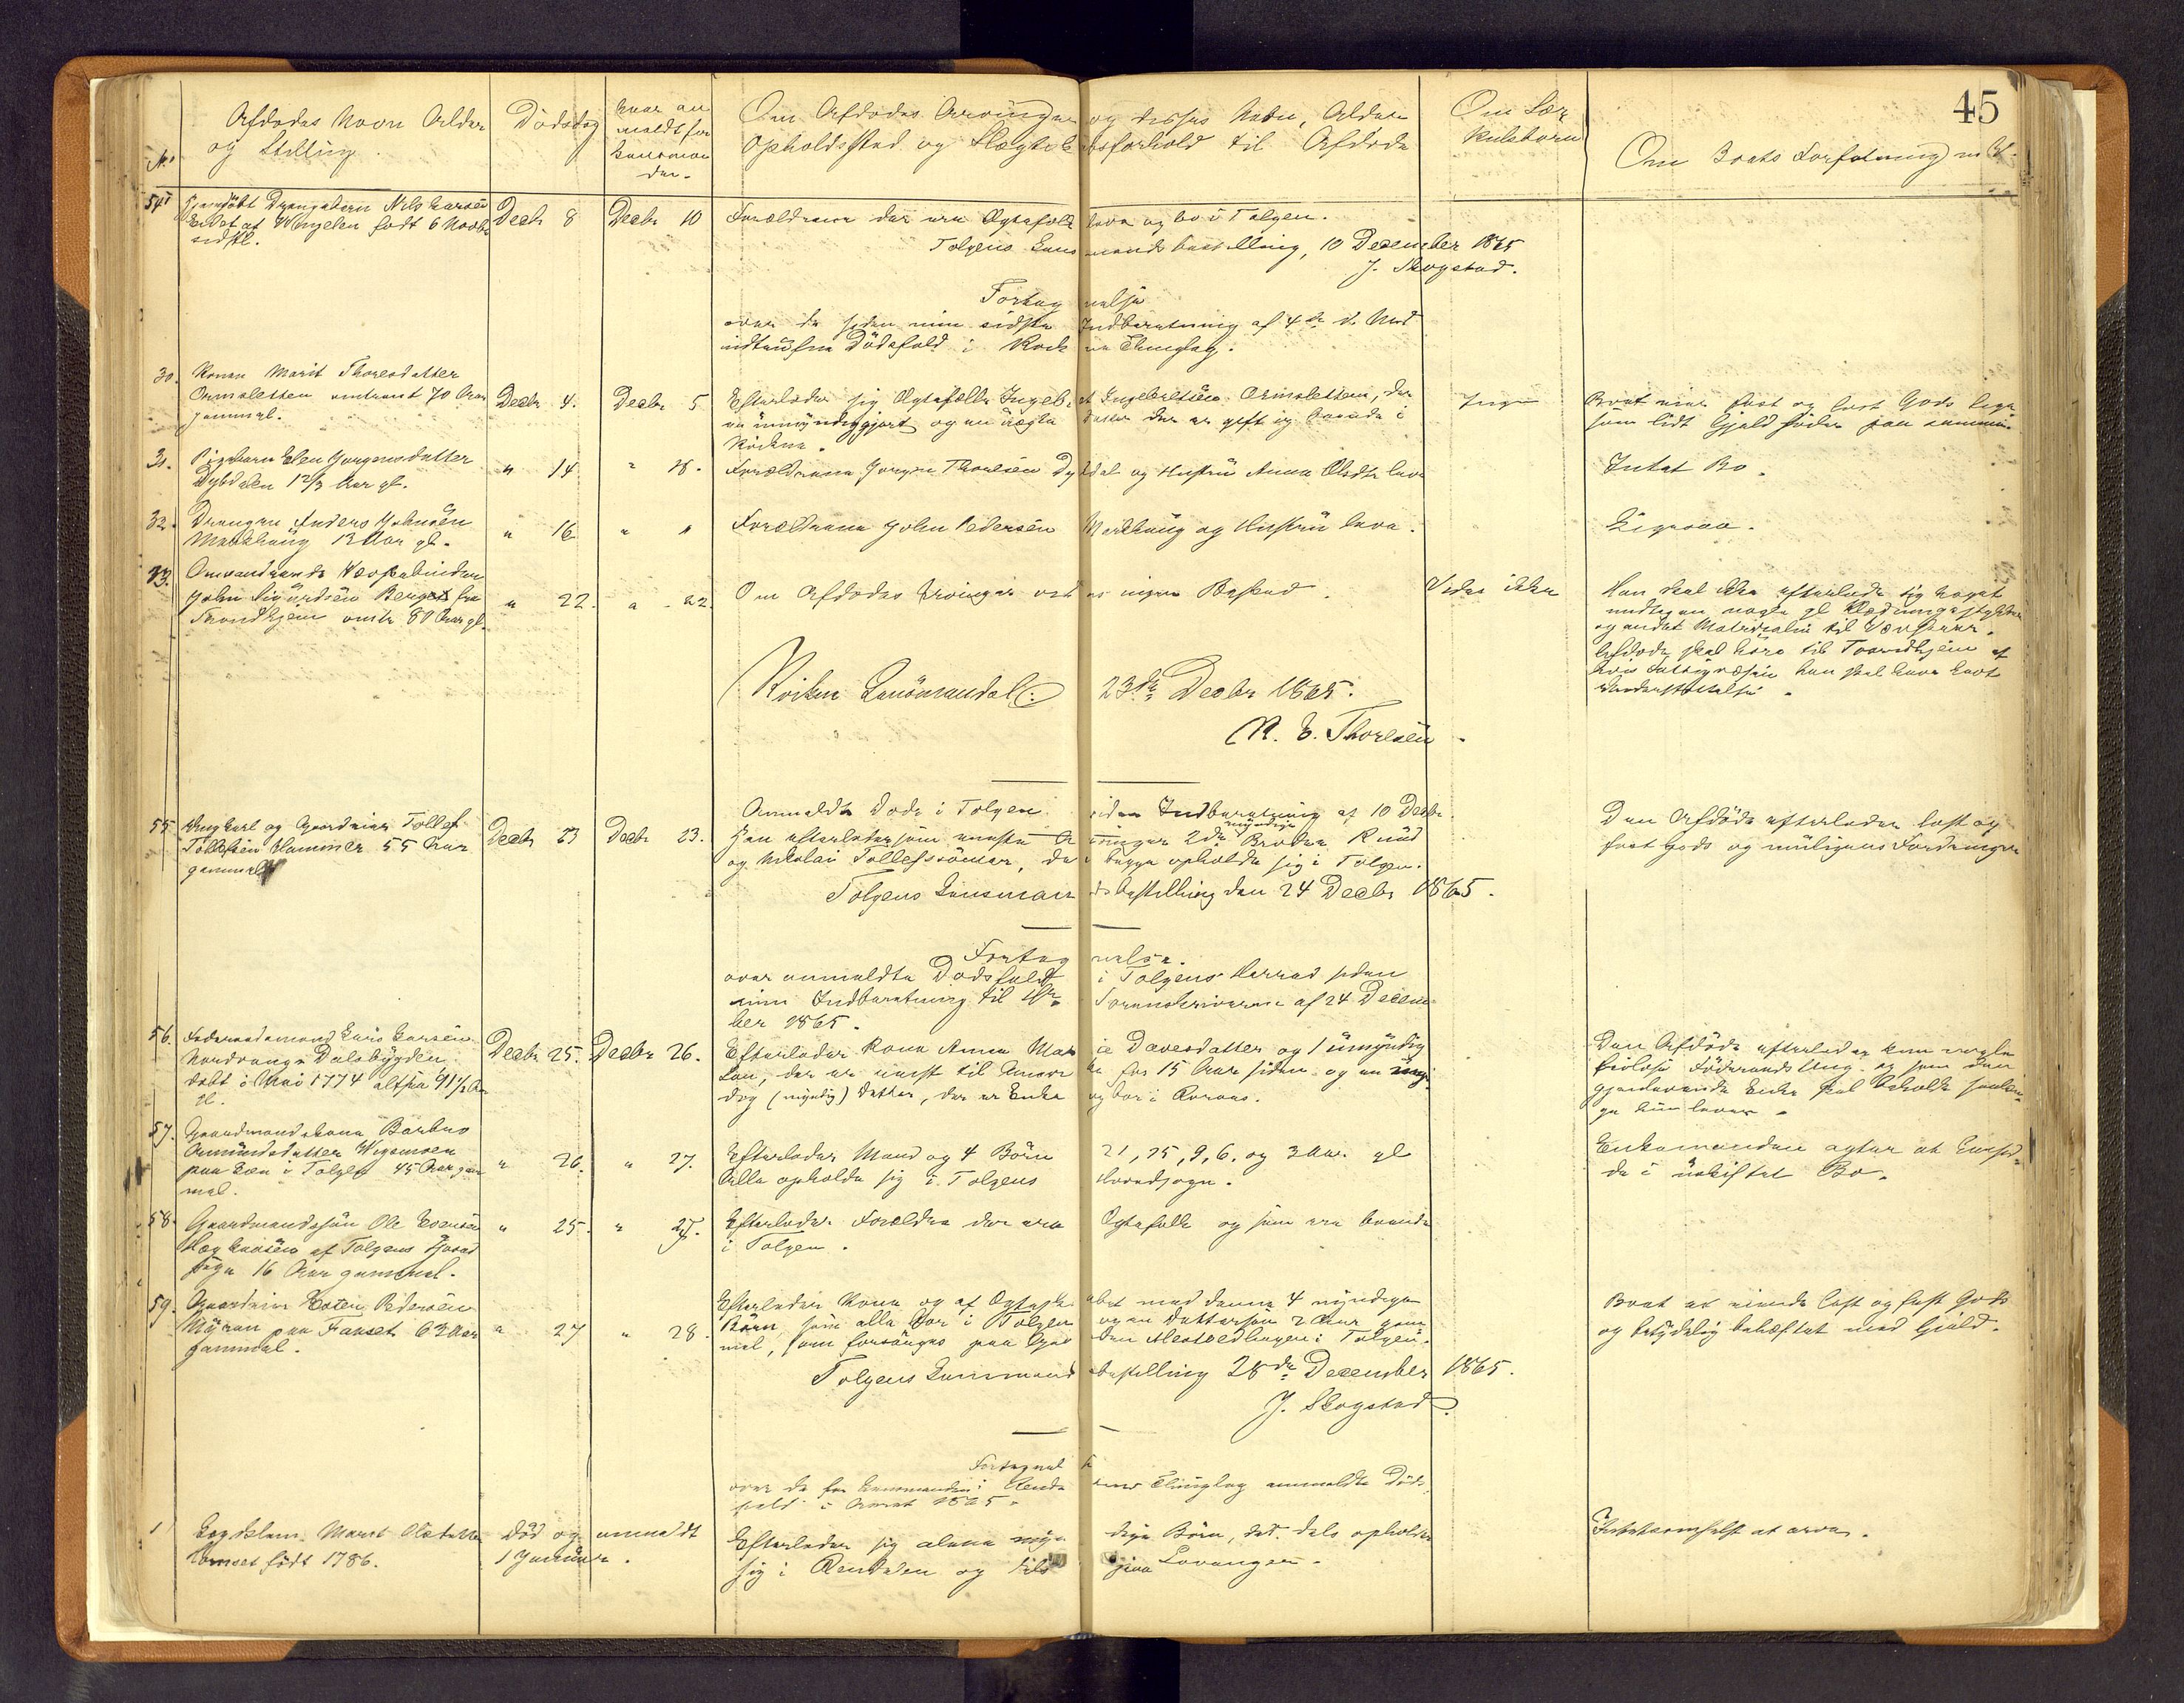 45
No
Afdødes Navn Alder
og Stilling
Dödsdag
naar an
meldt for
Lensman
den.
Om Afdødes Arvinger og disses Navn, Alder
Opholdssted og Slægtskabsforhold til Afdøde
Om Sær
kulsbørn
Om Boets Forfatning m. M.
54
Hjemdøbt Drengebarn Nils Larsen
af Vingelen født 6 Novbr
sidstl.
Decbr 8
Decbr 10
Forældrene der ere Ægtefolk leve og bo i Tolgen.
Tolgens Lensmandsbestilling, 10 December 1865
J. Skogstad.
Fortegnelse
over de siden min sidste Indberetning af 4de d. Md
indtrufne Dödsfald i Thinglag.
30.
Konen Marit Thoresdatter
Ormsletten omtrent 70 Aar
gammel.
Decbr 4.
Decbr 5
Efterlader sig Ægtefælle Ingebret Ingebretsen Ormsletten, der
er umyndiggjort og en ægte Datter der er gift og boende i
Ingen
Boet eier fast og løst Gods lige
som lidt Gjeld hviler paa samme.
31.
Pigebarn Elen Jörgensdatter
Dybdalen 1 2/3 Aar gl.
" 14
" 18.
Forældrene Jørgen Thoresen Dybdal og Hustru Anna Olsdtr leve
Intet Bo.
32.
Drengen Anders Johnsen
13 Aar gl.
" 16
" "
Forældrene John Pedersen og Hustru leve.
Ligesaa.
33.
Omvandrende Vævskebinder
John Sivertsen Berget fra
Trondhjem omtr 80 Aar gl.
" 22.
" 22.
Om Afdødes Arvinger vides ingen Besked.
Vides ikke
Han skal ikke efterlade sig noget
undtagen nogle gl Klædningsstykker
og andet Materiale til Vævskeer.
Afdøde skal høre til Trondhjem af
hvis Fattigvæsen han skal have havt
Understøttelse.
Lensmandsbest: 23de Decbr 1865.
N. E. Thoresen.
Anmeldte Döde i Tolgen siden Indberetning af 10 Decbr
55
Ungkarl og Gaardeier Tollef
Tollefsen Hammer 55 Aar
gammel
Decbr 23
Decbr 23.
Han efterlader som eneste Arvinger 2de myndige Brødre Knud
og Nikolai Tollefssønner, der begge opholde sig i Tolgen.
Tolgens Lensmandsbestilling den 24 Decbr 1865.
Den Afdöde efterlader løst og
fast Gods og muligens Fordringer
Fortegnelse.
over anmeldte Dödsfald i Tolgens Herred siden
min Indberetning til Hr Sorenskriveren af 24 Decem-
ber 1865.
56.
Føderaadsmand Lars Larsen
Nordvang Dalsbygden
døbt i Mai 1774 altsaa 91½ Aar
gl.
Decbr 25.
Decbr 26.
Efterlader Kone Anna Marie Davesdatter og 1 umyndig
Søn, der er reist til Amerika for 15 Aar siden og en myn-
dig (myndig) Datter, der er Enke og bor i Røraas.
Den Afdöde efterlader kun nogle
livløse Føderaads Ting og som den
gjenlevende Enke skal beholde saalæn-
ge hun lever.
57.
Gaardmandskone Barbro
Amundsdatter Vigemoen
paa Øen i Tolgen 45 Aar gam
mel.
" 26.
" 27.
Efterlader Mand og 4 Børn 21, 15, 9, 6. og 3 Aar gl
Alle opholde sig i Tolgens Hovedsogn.
Enkemanden agter at hensid-
de i uskiftet Bo.
58.
Gaardmandssøn Ole Esensen
af Tolgens Hoved
sogn 16 Aar gammel.
" 25.
" 27.
Efterlader Forældre der ere Ægtefolk og som ere boende
i Tolgen.
59.
Gaardeier Esten Pedersen
Myren paa Faaset 63 Aar
gammel.
" 27
" 28.
Efterlader Kone og af Ægteskabet med denne 4 myndige
Børn, som alle bor i Tolgen og en Dattersøn 2 Aar gam
mel, som forsörges paa Gaarden i Tolgen.
Tolgens Lensmandsbestilling 28de December 1865.
J. Skogstad.
Boet er eiende løst og fast Gods
og betydelig behæftet med Gjeld.
Fortegnelse
over de for Lensmanden i Rendalens Thinglag anmeldte Döds
fald i Aaret 1865.
1
Lægdslem Marit Olsdatter
født 1786.
Död og anmeldt
1 Januar.
Efterlader sig alene myndige Børn, der dels opholder
sig i Rendalen og dels
Intetsomhelst at arve.